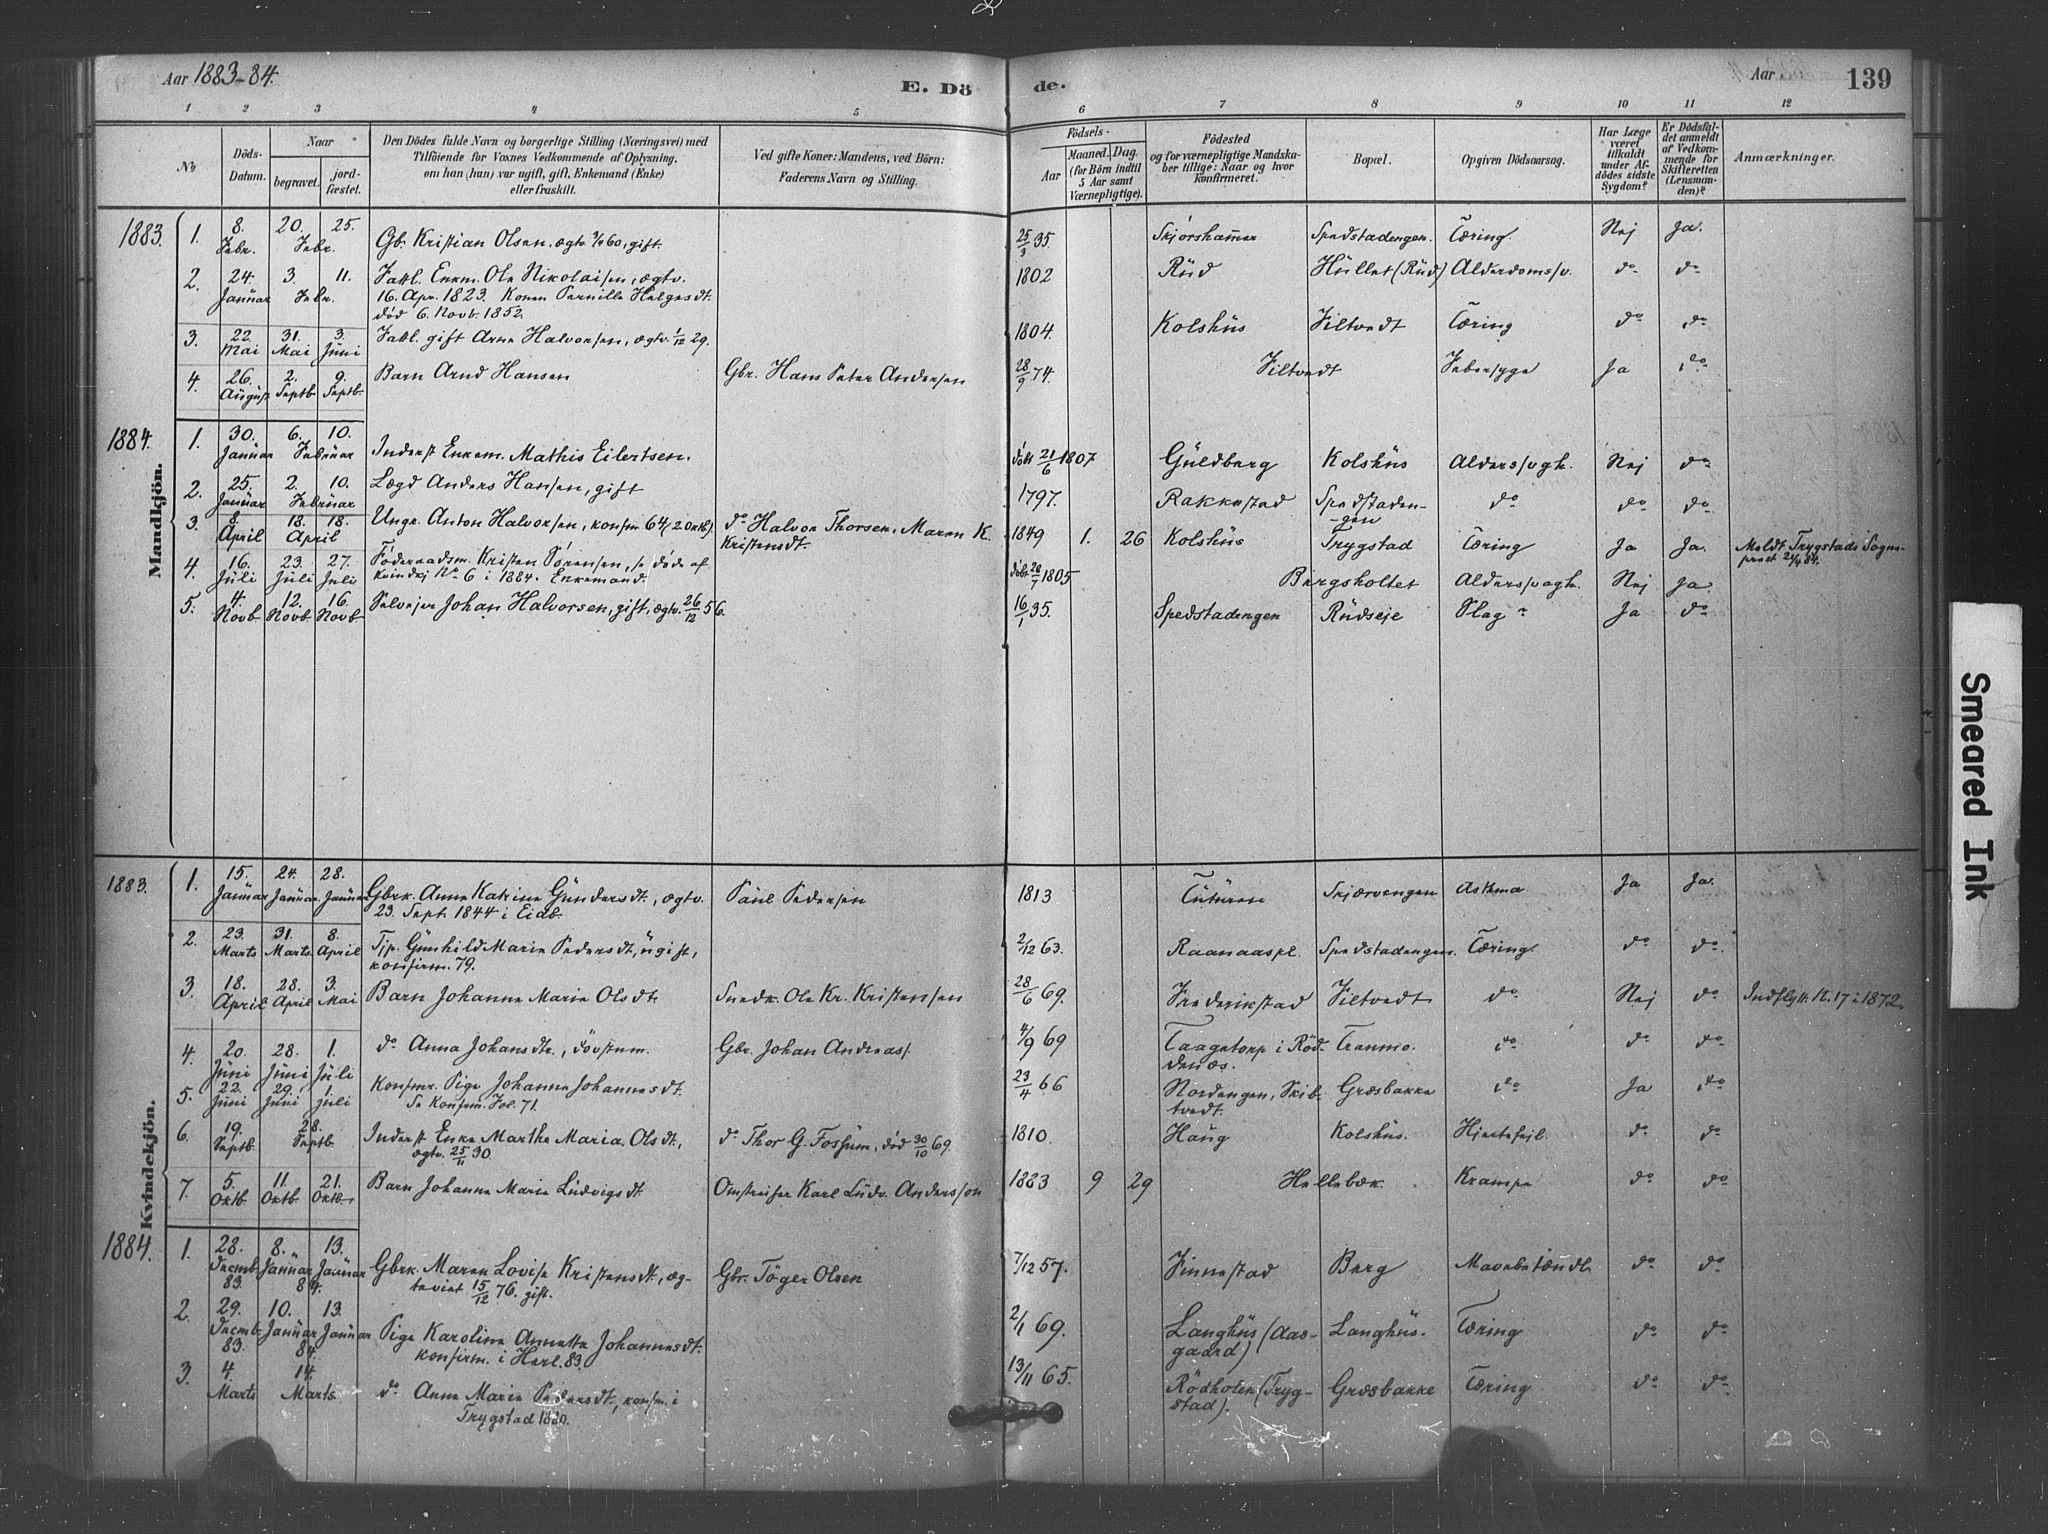 Aar 1883-84.
E. Dö
de.
Aar
139
1 2 3 4 5 6 7 8 9 10 11 12
No
Döds-Datum.
Naar
begravet.
jord-fæstet.
Den Dödes fulde Navn og borgerlige Stilling (Næringsvei) med
Tilföiende for Voxnes Vedkommende af Oplysning,
om han (hun) var ugift, gift, Enkemand (Enke)
eller fraskilt.
Ved gifte Koner: Mandens, ved Börn:
Faderens Navn og Stilling.
Födsels-
Aar
Maaned. Dag.
(for Börn indtil
5 Aar samt
Værnepligtige).
Födested
og for værnepligtige Mandska-
ber tillige: Naar og hvor
konfirmeret.
Bopæl.
Opgiven Dödsaarsag.
Har Læge
været
tilkaldt
under Af-
dödes sidste
Sygdom?
Er Dödsfal-
det anmeldt
af Vedkom-
mende for
Skifteretten
(Lensman-
den)?
Anmærkninger.
Mandkjön.
1883. 1. 8. Febr. 20. 25. Febr. Gbr. Kristian Olsen, ægtv. 60, gift. 25/3 35. Skjörshammer Spedstadengen. Tæring. Nej Ja.
2. 24. Januar 3. 11. Febr. Fattl. Enkem. Ole Nikolaisen, ægtv. 1802 Rud Hullet (Rud) Alderdomssv. do do
16. Apr. 1823. Konen Pernille Helgesdt.
död 6. Novb. 1852.
3. 22. Mai 31. Mai 3. Juni Fattl. gift Arne Halvorsen, ægtv. 1/12 29. 1804. Kolshus Filtvedt Tæring do do
4. 26. August 2. Septb. 9. Septb. Barn Arnd Hansen Gbr. Hans Peter Andersen 28/9 74. Filtvedt Febersyge Ja do
1884. 1. 30. Januar 6. 10. Februar Inderst Enkem. Mathis Eilertsen. döbt 21/6 1807 Guldberg Kolshus Alderssvagh. Nej do
2. 25. Januar 2. 10. Februar Lægd Anders Hansen, gift 1797. Rakkestad Spedstaden-
gen do do do
3. 8. April 18. 18. April Ungk. Anton Halvorsen, konfm. 64 (2 oktb). do Halvor Thorsen. Maren K.
Kristensdt. 1849 1. 26 Kolshus Trygstad Tæring Ja Ja. Meldt Trygstads Sogne-
prest 21/4 84.
4. 16. Juli 23. Juli 27. Juli Föderaadsm. Kristen Sörensen, se döde af
Kvindekj No 6 i 1884. Enkemand. döbt 20/7 1805 Bergsholtet Alderssvagh. Nej Ja.
5. 4. Novb. 12. Novb. 16. Novb. Selvejer Johan Halvorsen, gift, ægtv. 26/12 56. 16/1 35. Spedstadengen Rudseje Slag Ja do
Kvindekjön.
1883. 1. 15. Januar 24. Januar 28. Januar Gbrk. Anne Katrine Gundersdt., ægtv.
23. Sept. 1844 i Eidb. Paul Pedersen 1813 Tuturen Skjærvengen Asthma Ja Ja.
2. 23. Marts 31. Marts 8. April Tjp. Gunhild Marie Pedersdt., ugift,
konfirm. 79. 2/12 63. Raanaaspl. Spedstadengen. Tæring. do do
3. 18. April 28. April 3. Mai Barn Johanne Marie Olsdt. Snedk. Ole Kr. Kristensen 28/6 69. Frederikstad Filtvedt do Nej do Indflytt. N. 17 i 1872.
4. 20. Juni 28. Juni 1. Juli do Anna Johansdtr., dövstum. Gbr. Johan Andreass. 4/9 69 Taagetorp i Röd-
denæs. Tranmo. do do do
5. 22. Juni 29. Juni 1. Juli Konfmr. Pige Johanne Johannesdt.
Se Konfirm. Fol. 71. 23/4 66 Nordengen, Skib-
tvedt. Græsbakke do Ja do
6. 19. Septb. 28. Septb. Inderst Enke Marthe Maria Olsdt.,
ægtv. 25/11 30. do Thor G. Fossum, död 30/10 69. 1810. Haug Kolshus. Hjertefejl. do do
7. 5. Oktb. 11. Oktb. 21. Oktb. Barn Johanne Marie Ludvigsdt. Omstreifer Karl Ludv. Andersson 1883 9 29 Hellebæk. Krampe do do
1884. 1. 28. Decmb. 83 8. Januar 84. 13. Januar Gbrk. Maren Lovise Kristensdt., æg-
teviet 15/12 76. gift. Gbr. Töger Olsen 7/12 57. Finnestad Berg Mavebetændl. do do
2. 29. Decmb. 83. 10. Januar 84. 13. Januar Pige Karoline Annette Johannesdt.
konfirm. i Herl. 83. 2/1 69. Langhus (Aas-
gaard) Langhus. Tæring do do
3. 4. Marts 14. Marts do Anne Marie Pedersdt., konfm. i
Trygstad 1880. 13/11 65. Rödholen (Tryg-
stad). Græsbakke Tæring do do
Smeared Ink